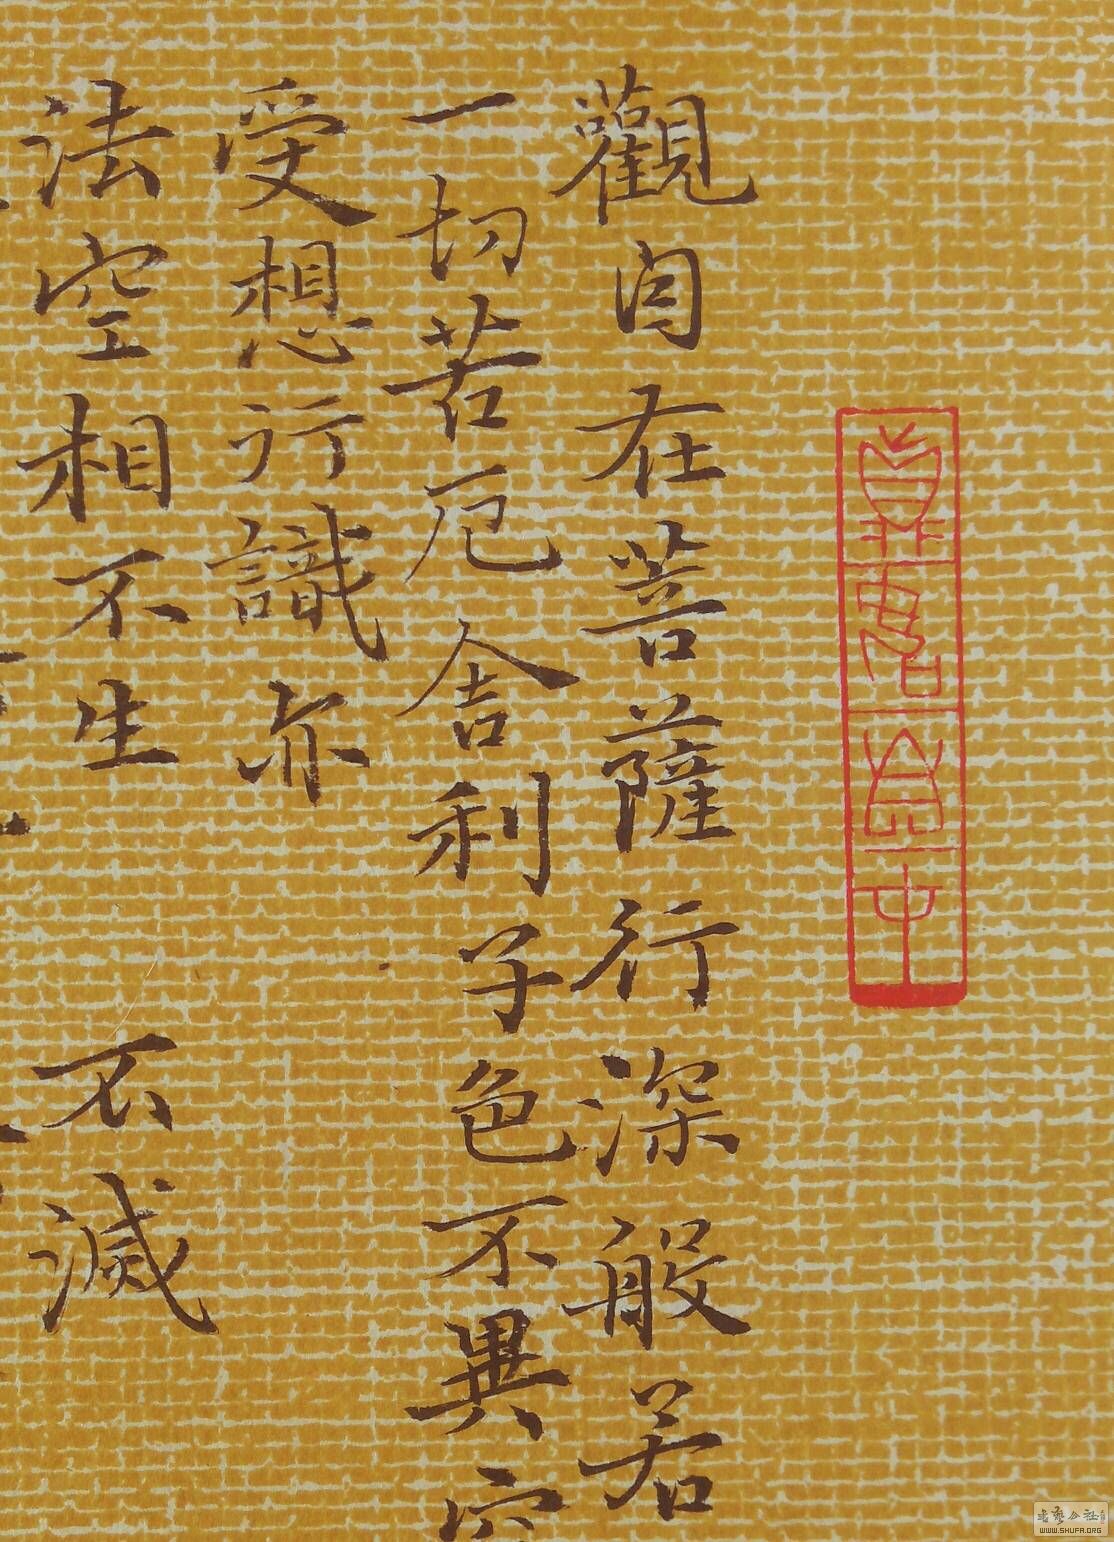 觀自在菩薩行深般若
一切苦厄舍利子色不異空
受想行識亦
法空相不生不滅
WWW.SHUFA.ORG